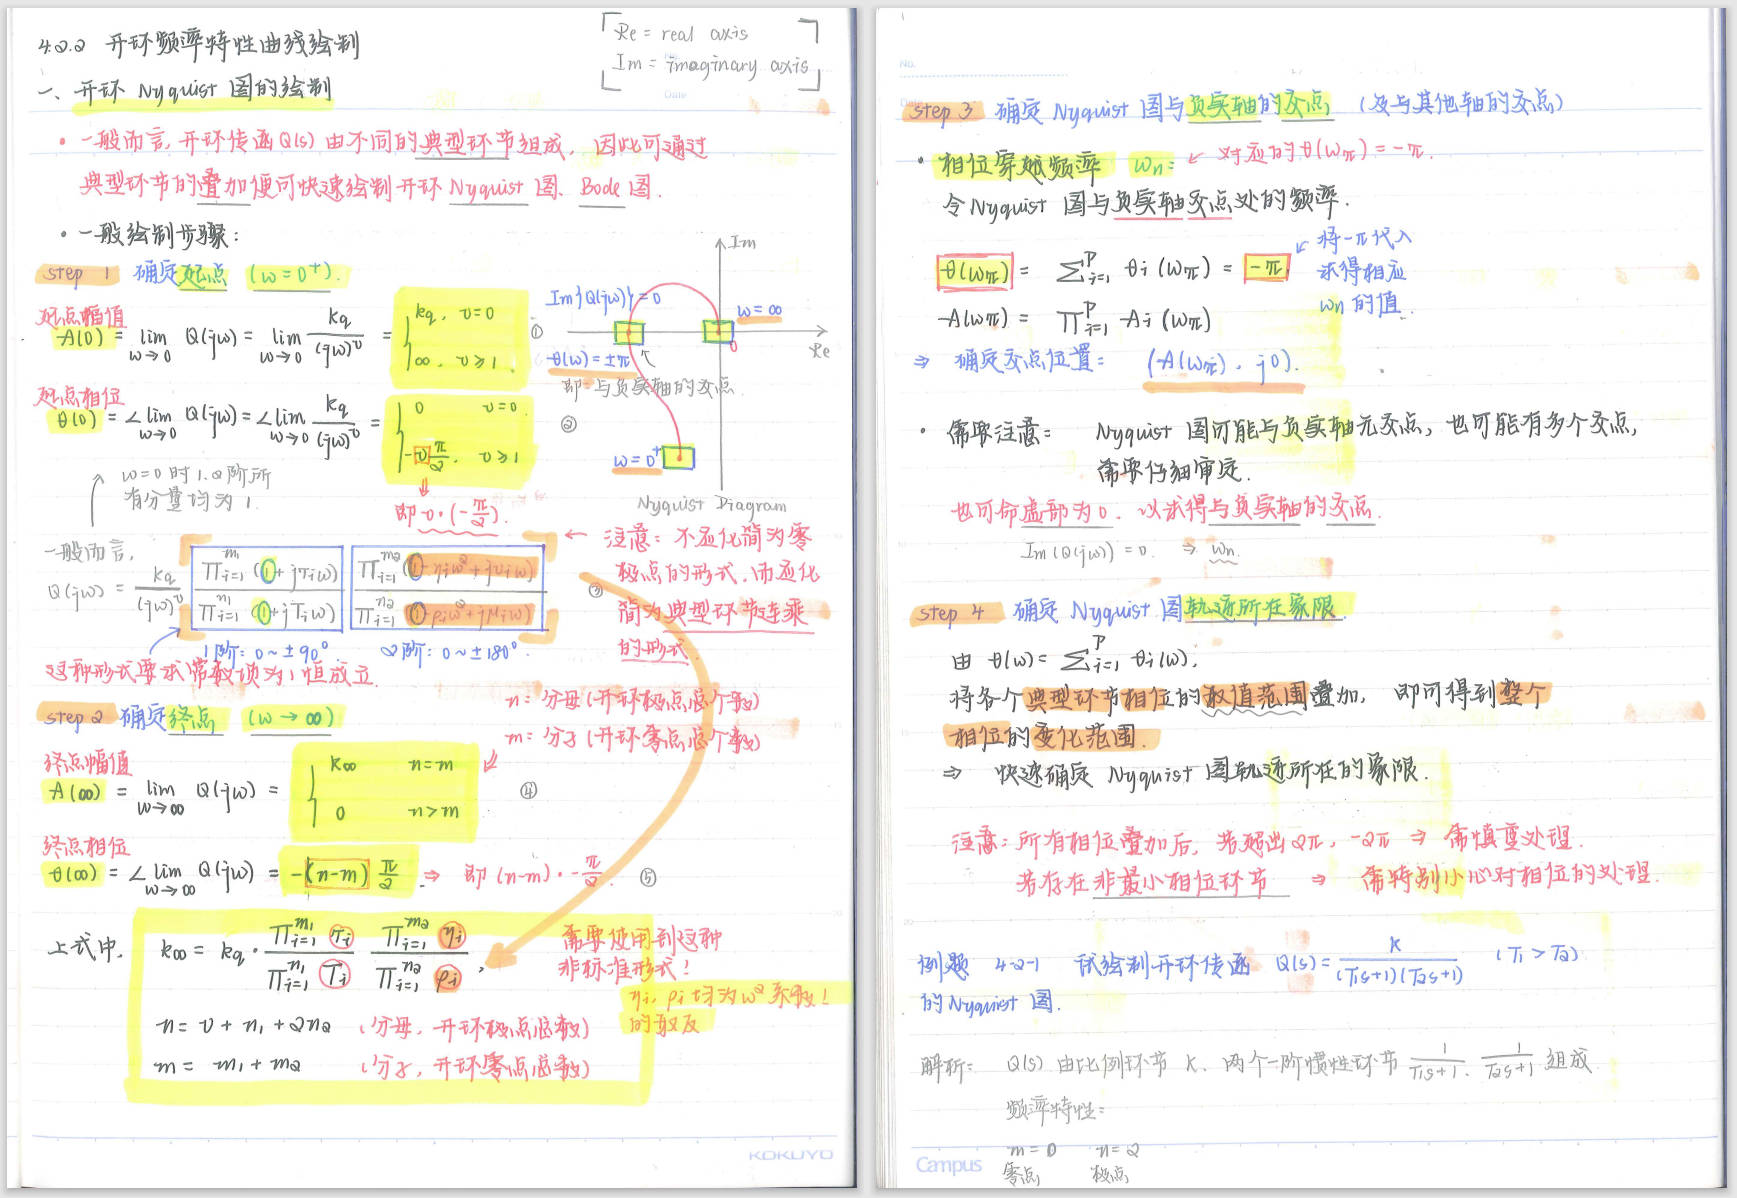 4.2.2 开环频率特性曲线绘制
Re = real axis
Im = imaginary axis
Date
一、开环 Nyquist 图的绘制
• 一般而言, 开环传函Q(s) 由不同的典型环节组成, 因此可通过
典型环节的叠加便可快速绘制开环 Nyquist 图、Bode 图.
• 一般绘制步骤:
step 1 确定起点 (ω=0⁺).
起点幅值
A(0) = lim ω→0 Q(jω) = lim ω→0 kq/(jω)^υ = { kq, υ=0
∞, υ≥1 ①
起点相位
θ(0) = ∠lim ω→0 Q(jω) = ∠lim ω→0 kq/(jω)^υ = { 0 υ=0
-υ π/2, υ≥1 ②
即 υ·(-π/2).
ω=0 时 1.2阶所
有分量均为 1.
Im
Im{Q(jω)}=0
ω=∞
0
Re
θ(ω)=±π
即: 与负实轴的交点
ω=0⁺
Nyquist Diagram
一般而言,
Q(jω) = kq/(jω)^υ [ ∏i=1^m1 (1+jτiω) / ∏i=1^n1 (1+jTiω) ] [ ∏i=1^m2 (1-ηiω²+jυiω) / ∏i=1^n2 (1-ρiω²+jμiω) ] ③
1阶: 0~±90°
2阶: 0~±180°.
← 注意: 不应化简为零
极点的形式, 而应化
简为典型环节连乘
的形式.
这种形式要求常数项为1恒成立.
step 2 确定终点 (ω→∞)
n: 分母(开环极点总个数)
m: 分子(开环零点总个数)
终点幅值
A(∞) = lim ω→∞ Q(jω) = { k∞ n=m
0 n>m ④
终点相位
θ(∞) = ∠lim ω→∞ Q(jω) = -(n-m) π/2. ⇒ 即 (n-m)·-π/2. ⑤
上式中,
k∞ = kq · ∏i=1^m1 τi / ∏i=1^n1 Ti ∏i=1^m2 ηi / ∏i=1^n2 ρi,
需要使用到这种
非标准形式!
ηi, ρi 均为ω²系数!
的取反
n = υ + n1 + 2n2 (分母, 开环极点总数)
m = m1 + m2 (分子, 开环零点总数)
KOKUYO
No.
Date
step 3 确定 Nyquist 图与负实轴的交点 (及与其他轴的交点)
• 相位穿越频率 ωπ: ← 对应的θ(ωπ)=-π.
令Nyquist 图与负实轴交点处的频率.
θ(ωπ) = ∑i=1^p θi(ωπ) = -π.
← 将-π代入
求得相应
ωπ 的值.
A(ωπ) = ∏i=1^p Ai(ωπ)
⇒ 确定交点位置: (A(ωπ), j0).
• 需要注意: Nyquist 图可能与负实轴无交点, 也可能有多个交点,
需要仔细审定.
也可命虚部为0. 以求得与负实轴的交点.
Im(Q(jω))=0. ⇒ ωπ.
step 4 确定 Nyquist 图轨迹所在象限.
由 θ(ω)= ∑i=1^p θi(ω),
将各个典型环节相位的取值范围叠加, 即可得到整个
相位的变化范围.
⇒ 快速确定 Nyquist 图轨迹所在的象限.
注意: 所有相位叠加后, 若超出2π, -2π ⇒ 需慎重处理.
若存在非最小相位环节 ⇒ 需特别小心对相位的处理.
例题 4-2-1 试绘制开环传函 Q(s) = k/(T1s+1)(T2s+1) (T1>T2)
的Nyquist 图.
解析: Q(s) 由比例环节 K、两个一阶惯性环节 1/T1s+1. 1/T2s+1 组成.
频率特性:
m=0 n=2
零点 极点
Campus